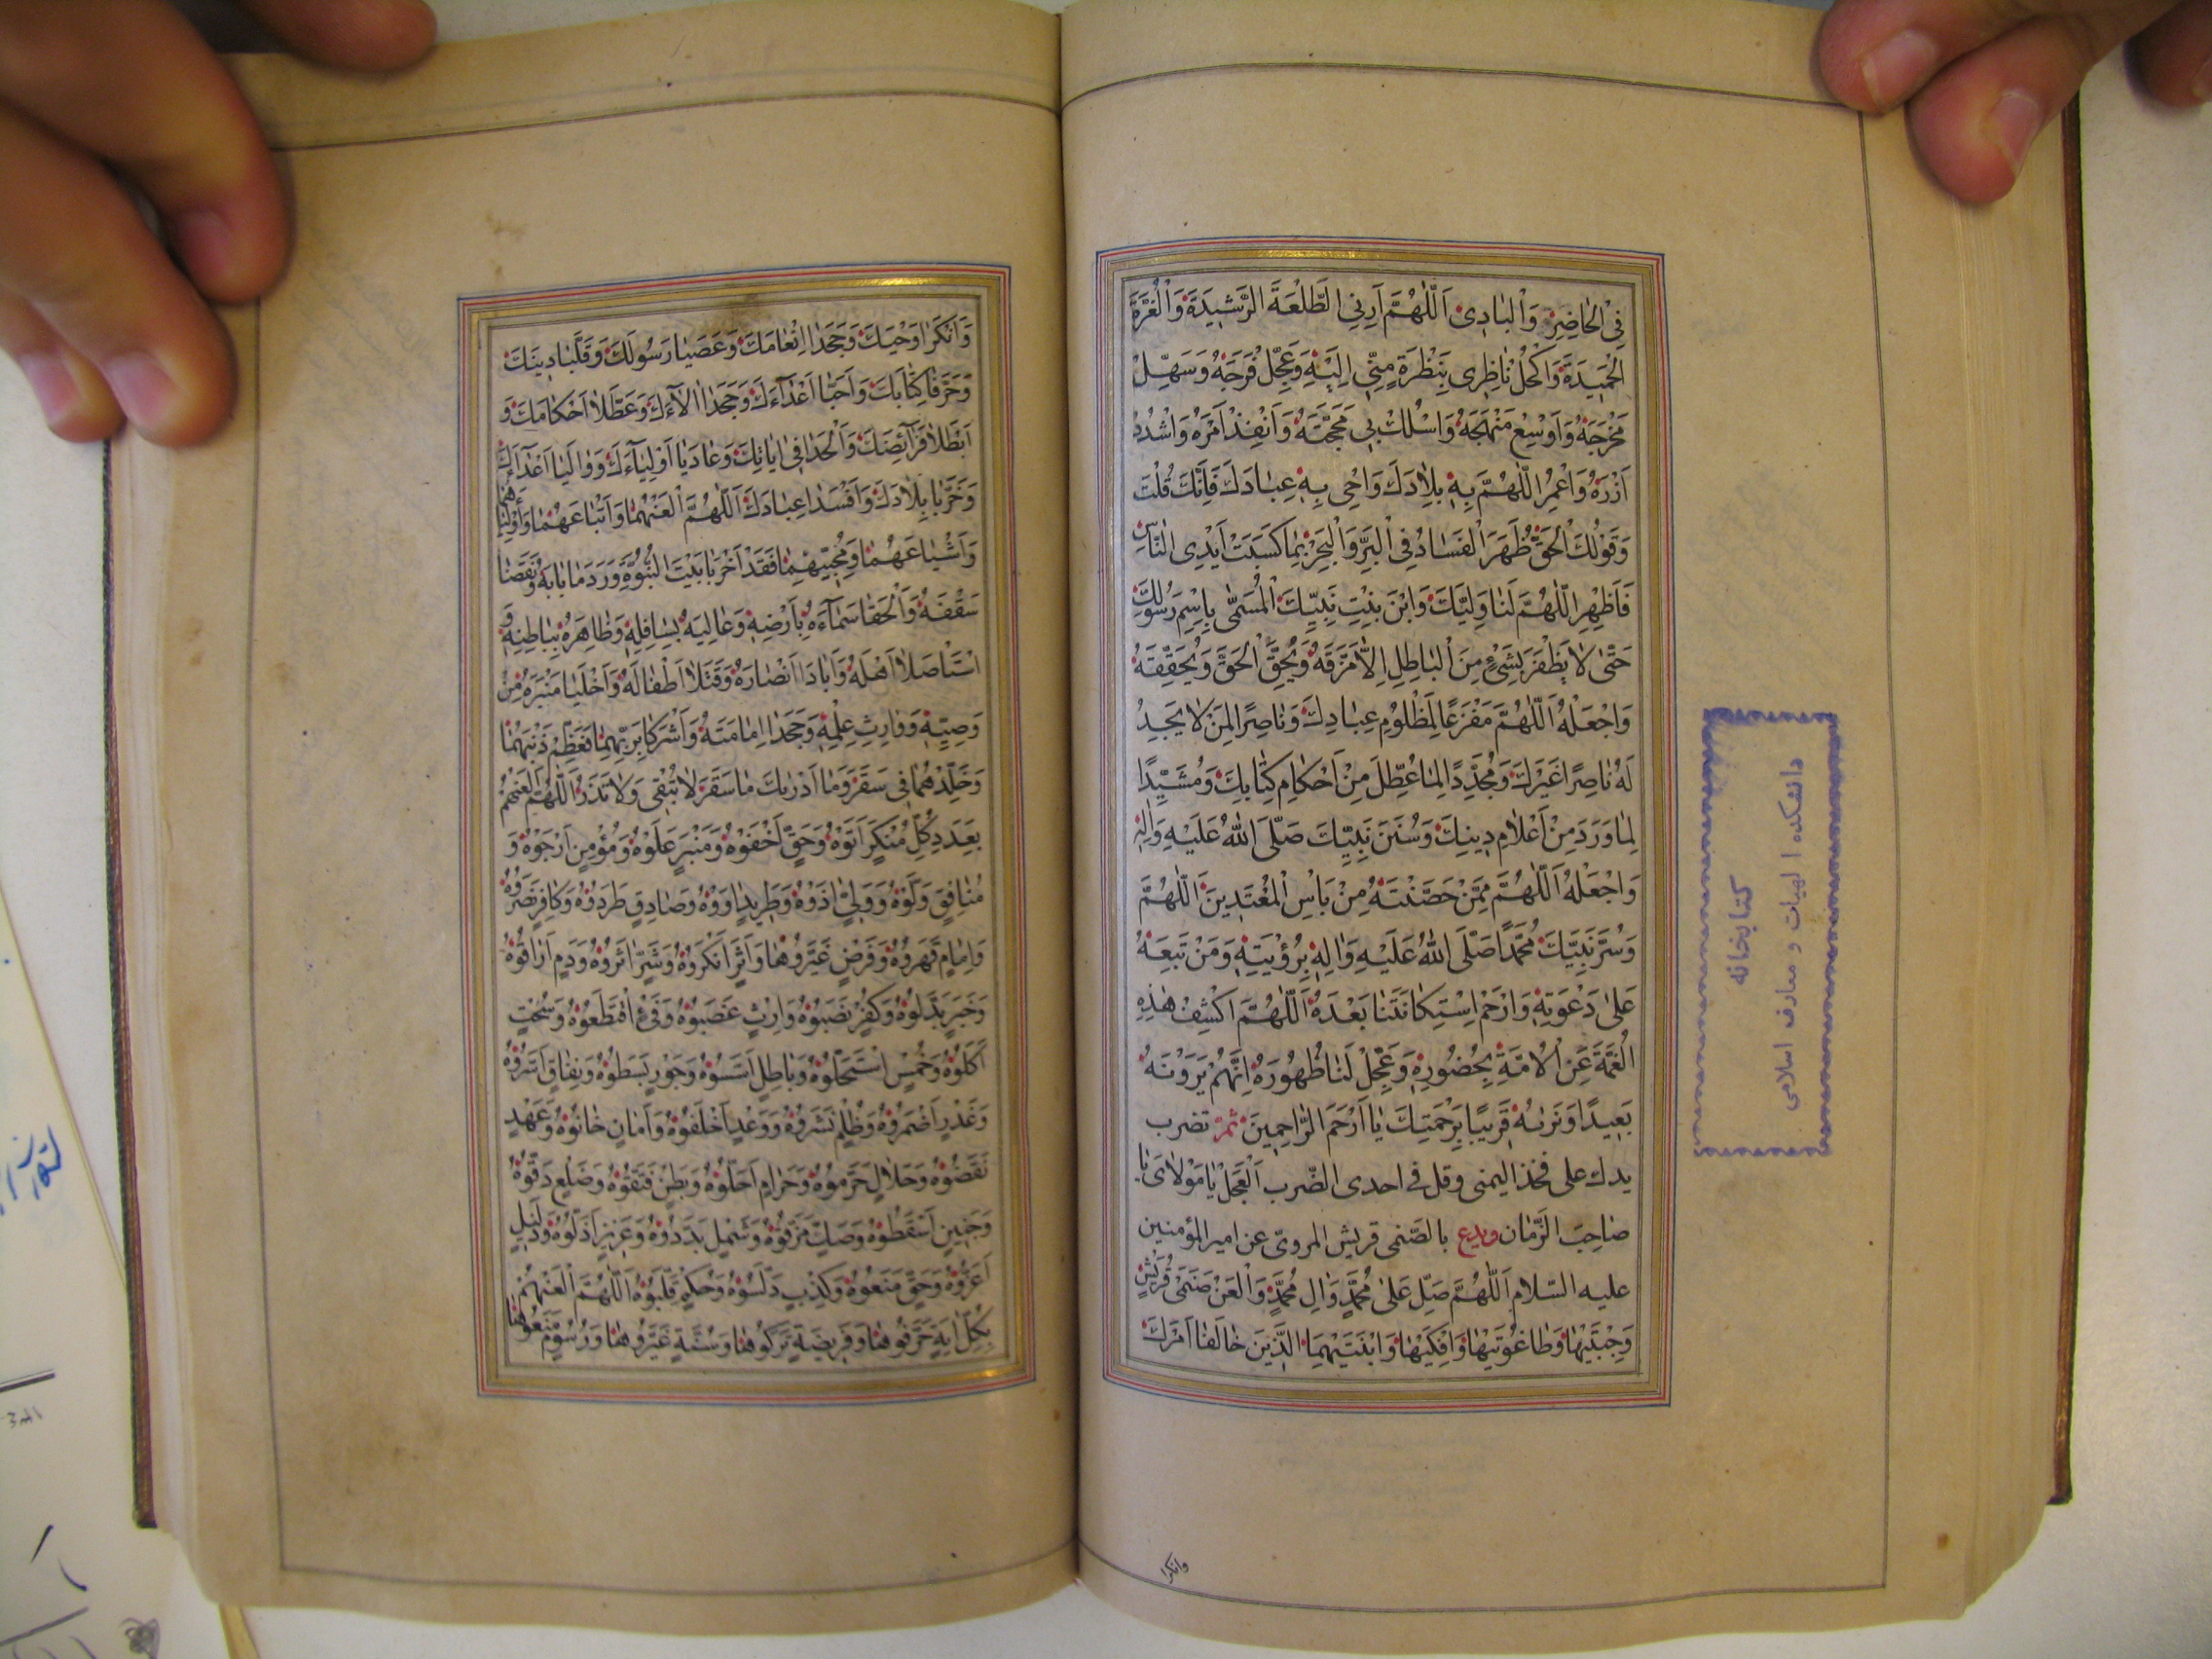 فِي الْحَاضِرِ وَالْبَادِي اَللّٰهُمَّ اَرِنِي الطَّلْعَةَ الرَّشِيدَةَ وَالْغُرَّةَ
الْحَمِيدَةَ وَاكْحُلْ نَاظِرِي بِنَظْرَةٍ مِنِّي اِلَيْهِ وَعَجِّلْ فَرَجَهُ وَسَهِّلْ
مَخْرَجَهُ وَاَوْسِعْ مَنْهَجَهُ وَاسْلُكْ بِي مَحَجَّتَهُ وَاَنْفِذْ اَمْرَهُ وَاشْدُدْ
اَزْرَهُ وَاعْمُرِ اللّٰهُمَّ بِهِ بِلَادَكَ وَاحْيِ بِهِ عِبَادَكَ فَاِنَّكَ قُلْتَ
وَقَوْلُكَ الْحَقُّ ظَهَرَ الْفَسَادُ فِي الْبَرِّ وَالْبَحْرِ بِمَا كَسَبَتْ اَيْدِي النَّاسِ
فَاَظْهِرِ اللّٰهُمَّ لَنَا وَلِيَّكَ وَابْنَ بِنْتِ نَبِيِّكَ الْمُسَمّٰى بِاسْمِ رَسُولِكَ
حَتّٰى لَا يَظْفَرَ بِشَيْءٍ مِنَ الْبَاطِلِ اِلَّا مَزَّقَهُ وَيُحِقَّ الْحَقَّ وَيُحَقِّقَهُ
وَاجْعَلْهُ اَللّٰهُمَّ مَفْزَعًا لِمَظْلُومِ عِبَادِكَ وَنَاصِرًا لِمَنْ لَا يَجِدُ
لَهُ نَاصِرًا غَيْرَكَ وَمُجَدِّدًا لِمَا عُطِّلَ مِنْ اَحْكَامِ كِتَابِكَ وَمُشَيِّدًا
لِمَا وَرَدَ مِنْ اَعْلَامِ دِينِكَ وَسُنَنِ نَبِيِّكَ صَلَّى اللّٰهُ عَلَيْهِ وَاٰلِهِ
وَاجْعَلْهُ اَللّٰهُمَّ مِمَّنْ حَصَّنْتَهُ مِنْ بَاْسِ الْمُعْتَدِينَ اَللّٰهُمَّ
وَسُرَّ نَبِيَّكَ مُحَمَّدًا صَلَّى اللّٰهُ عَلَيْهِ وَاٰلِهِ بِرُؤْيَتِهِ وَمَنْ تَبِعَهُ
عَلٰى دَعْوَتِهِ وَارْحَمْ اِسْتِكَانَتَنَا بَعْدَهُ اَللّٰهُمَّ اكْشِفْ هٰذِهِ
الْغُمَّةَ عَنِ الْاُمَّةِ بِحُضُورِهِ وَعَجِّلْ لَنَا ظُهُورَهُ اِنَّهُمْ يَرَوْنَهُ
بَعِيدًا وَنَرٰىهُ قَرِيبًا بِرَحْمَتِكَ يَا اَرْحَمَ الرَّاحِمِينَ ثمّ تضرب
يدك على فخذ اليمنى وقل فى احدى الضّرب اَلْعَجَلْ يَا مَوْلَايَ يَا
صَاحِبَ الزَّمَان ويدع بالصّنمى قريش المروىّ عن امير المؤمنين
عليه السّلام اَللّٰهُمَّ صَلِّ عَلٰى مُحَمَّدٍ وَاٰلِ مُحَمَّدٍ وَالْعَنْ صَنَمَيْ قُرَيْشٍ
وَجِبْتَيْهَا وَطَاغُوتَيْهَا وَاِفْكَيْهَا وَابْنَتَيْهِمَا الَّذِينَ خَالَفَا اَمْرَكَ
وانكرا
كتابخانه
دانشكده الهيات و معارف اسلامى
وَاَنْكَرَا وَحْيَكَ وَجَحَدَا اِنْعَامَكَ وَعَصَيَا رَسُولَكَ وَقَلَّبَا دِينَكَ
وَحَرَّفَا كِتَابَكَ وَاَحَبَّا اَعْدَاءَكَ وَجَحَدَا اٰلَاءَكَ وَعَطَّلَا اَحْكَامَكَ وَ
اَبْطَلَا فَرَائِضَكَ وَاَلْحَدَا فِي اٰيَاتِكَ وَعَادَيَا اَوْلِيَاءَكَ وَوَالَيَا اَعْدَاءَكَ
وَخَرَّبَا بِلَادَكَ وَاَفْسَدَا عِبَادَكَ اَللّٰهُمَّ الْعَنْهُمَا وَاَتْبَاعَهُمَا وَاَوْلِيَاءَهُمَا
وَاَشْيَاعَهُمَا وَمُحِبِّيهِمَا فَقَدْ اَخْرَبَا بَيْتَ النُّبُوَّةِ وَرَدَمَا بَابَهُ وَنَقَضَا
سَقْفَهُ وَاَلْحَقَا سَمَاءَهُ بِاَرْضِهِ وَعَالِيَهُ بِسَافِلِهِ وَظَاهِرَهُ بِبَاطِنِهِ وَ
اسْتَأْصَلَا اَهْلَهُ وَاَبَادَا اَنْصَارَهُ وَقَتَلَا اَطْفَالَهُ وَاَخْلَيَا مِنْبَرَهُ مِنْ
وَصِيِّهِ وَوَارِثِ عِلْمِهِ وَجَحَدَا اِمَامَتَهُ وَاَشْرَكَا بِرَبِّهِمَا فَعَظِّمْ ذَنْبَهُمَا
وَخَلِّدْهُمَا فِي سَقَرَ وَمَا اَدْرٰىكَ مَا سَقَرُ لَا تُبْقِي وَلَا تَذَرُ اَللّٰهُمَّ الْعَنْهُمْ
بِعَدَدِ كُلِّ مُنْكَرٍ اَتَوْهُ وَحَقٍّ اَخْفَوْهُ وَمِنْبَرٍ عَلَوْهُ وَمُؤْمِنٍ اَرْجَوْهُ وَ
مُنَافِقٍ وَلَّوْهُ وَوَلِيٍّ اٰذَوْهُ وَطَرِيدٍ اٰوَوْهُ وَصَادِقٍ طَرَدُوهُ وَكَافِرٍ نَصَرُوهُ
وَاِمَامٍ قَهَرُوهُ وَفَرْضٍ غَيَّرُوهُ وَاَثَرٍ اَنْكَرُوهُ وَشَرٍّ اٰثَرُوهُ وَدَمٍ اَرَاقُوهُ
وَخَيْرٍ بَدَّلُوهُ وَكُفْرٍ نَصَبُوهُ وَاِرْثٍ غَصَبُوهُ وَفَيْءٍ اقْتَطَعُوهُ وَسُحْتٍ
اَكَلُوهُ وَخُمْسٍ اسْتَحَلُّوهُ وَبَاطِلٍ اَسَّسُوهُ وَجَوْرٍ بَسَطُوهُ وَنِفَاقٍ اَسَرُّوهُ
وَغَدْرٍ اَضْمَرُوهُ وَظُلْمٍ نَشَرُوهُ وَوَعْدٍ اَخْلَفُوهُ وَاَمَانٍ خَانُوهُ وَعَهْدٍ
نَقَضُوهُ وَحَلَالٍ حَرَّمُوهُ وَحَرَامٍ اَحَلُّوهُ وَبَطْنٍ فَتَقُوهُ وَضِلْعٍ دَقُّوهُ
وَجَنِينٍ اَسْقَطُوهُ وَصَكٍّ مَزَّقُوهُ وَشَمْلٍ بَدَّدُوهُ وَعَزِيزٍ اَذَلُّوهُ وَذَلِيلٍ
اَعَزُّوهُ وَحَقٍّ مَنَعُوهُ وَكَذِبٍ دَلَّسُوهُ وَحُكْمٍ قَلَّبُوهُ اَللّٰهُمَّ الْعَنْهُمْ
بِكُلِّ اٰيَةٍ حَرَّفُوهَا وَفَرِيضَةٍ تَرَكُوهَا وَسُنَّةٍ غَيَّرُوهَا وَرُسُومٍ مَنَعُوهَا